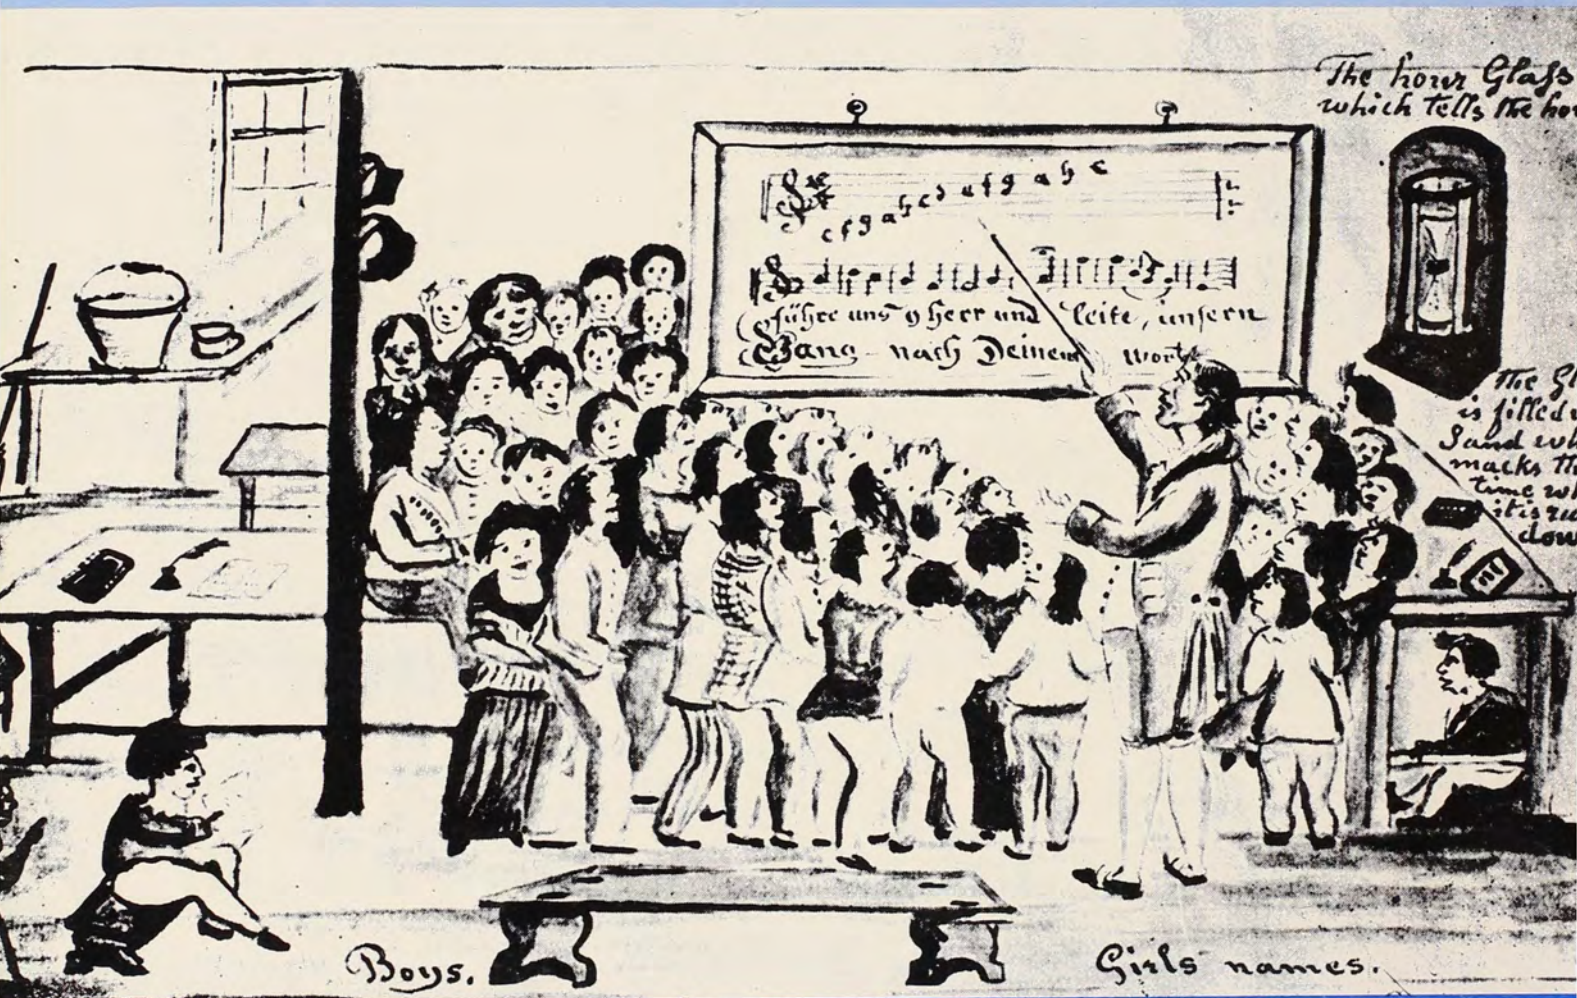 The hour Glaſs
which tells the hou
c f g a h c d e f g a h c
führe uns o Herr und leite, unsern
Gang nach Deinem wort
The Gl
is filled
Sand wh
macks th
time wh
it is ru
dow
Boys.
Girls names.